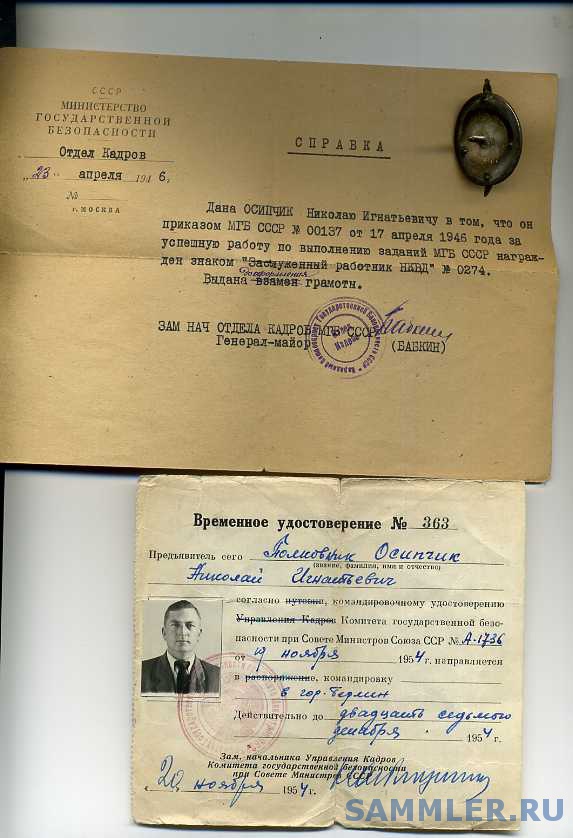 СССР
МИНИСТЕРСТВО
ГОСУДАРСТВЕННОЙ
БЕЗОПАСНОСТИ
Отдел Кадров
"23" апреля 1946 г.
№
г. МОСКВА
СПРАВКА
Дана ОСИПЧИК Николаю Игнатьевичу в том, что он
приказом МГБ СССР № 00137 от 17 апреля 1946 года за
успешную работу по выполнению заданий МГБ СССР награж-
ден знаком "Заслуженный работник НКВД" № 0274.
до оформления
Выдана взамен грамоты.
ЗАМ НАЧ ОТДЕЛА КАДРОВ МГБ СССР
Генерал-майор (БАБКИН)
Временное удостоверение № 363
Предъявитель сего Полковник Осипчик
(звание, фамилия, имя и отчество)
Николай Игнатьевич
согласно путовки, командировочному удостоверению
Управления Кадров Комитета государственной безо-
пасности при Совете Министров Союза ССР № А-1736
от 19 ноября 1954 г. направляется
в распоряжение, командировку
в гор. Берлин
Действительно до двадцать седьмого
декабря 1954 г.
Зам. начальника Управления Кадров
Комитета государственной безопасности
при Совете Министров СССР
"20" ноября 1954 г.
SAMMLER.RU